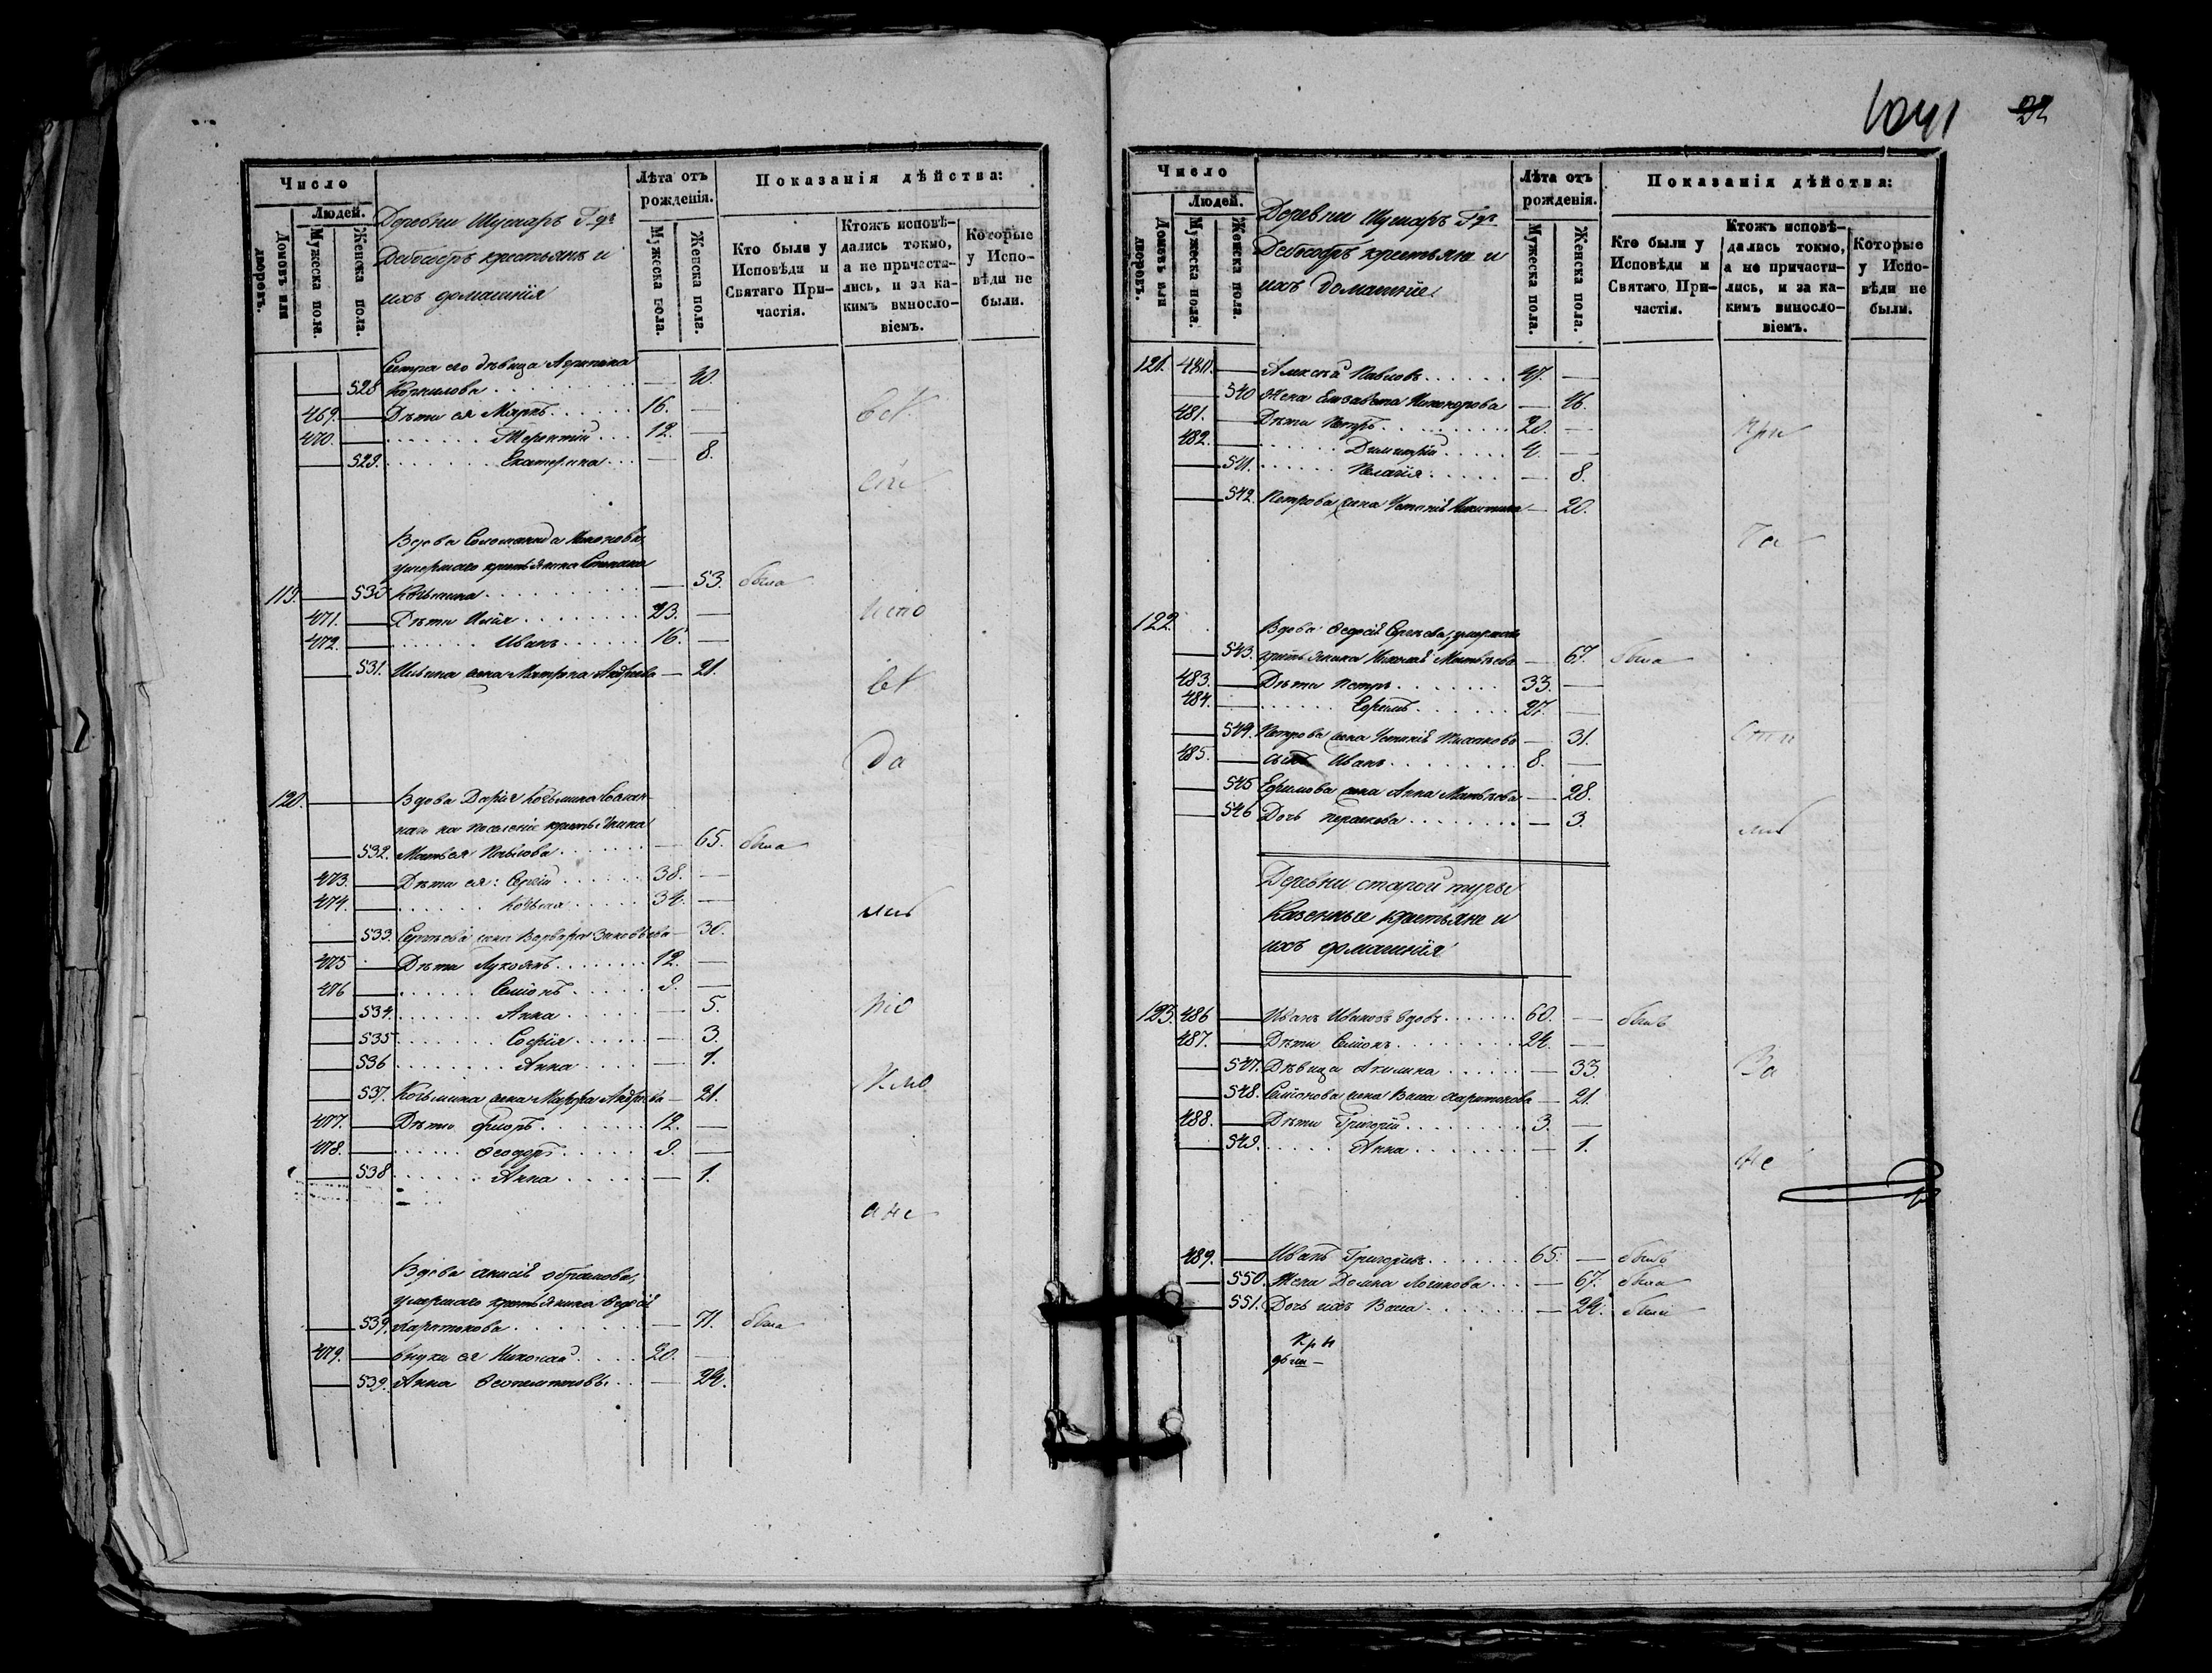 1041 22
Число
Людей.
Домовъ или дворовъ.
Мужеска пола.
Женска пола.
Деревни Шушаръ Гдъ
крестьянъ и
ихъ домашнія
Лѣта отъ рожденія.
Мужеска пола.
Женска пола.
Показанія дѣйства:
Кто были у Исповѣди и Святаго Причастія.
Ктожъ исповѣдались токмо, а не причастились, и за какимъ винословіемъ.
Которые у Исповѣди не были.
Сестра его дѣвица Агрипина
528 Корнилова — 40.
469. Дѣти ея Маркъ 16. —
470. Терентій 12. —
529. Екатерина — 8.
Вдова Соломанида
умершаго крестьянина Степана
119. 530 Козьмина — 53. была
471. Дѣти Илія 23. —
472. Иванъ 16. —
531. Ильина жена Матрона Андреева — 21.
120. Вдова Дарія Козьмина сослан-
наго на поселеніе крестьянина
532. Матвея Павлова — 65. была
473. Дѣти ея: Сергій 38. —
474. Козьма 34. —
533. Сергѣева жена Варвара Зиновьева — 30.
475 Дѣти Лукоянъ 12. —
476 Симіонъ 9. —
534. Анна — 5.
535 Софія — 3.
536 Анна — 1.
537. Козьмина жена Марфа Андреева — 21.
477. Дѣти 12. —
478. Ѳеодоръ 9. —
538 Анна — 1.
Вдова Анисія Абрамова,
умершаго крестьянина
539. Харитонова — 71. была
479. Внуки ея Николай 20. —
539. Анна — 24.
всѣ
сіи
испо
вѣ
да
лис
но
а не
Число
Людей.
Домовъ или дворовъ.
Мужеска пола.
Женска пола.
Деревни Шушаръ Гдъ
крестьяне и
ихъ домашніе
Лѣта отъ рожденія.
Мужеска пола.
Женска пола.
Показанія дѣйства:
Кто были у Исповѣди и Святаго Причастія.
Ктожъ исповѣдались токмо, а не причастились, и за какимъ винословіемъ.
Которые у Исповѣди не были.
121. 480. Алексѣй Павловъ 47. —
540 Жена Елизавета Никифорова — 46.
481. Дѣти Петръ 20. —
482. Димитрій 4. —
541. Пелагія — 8.
542. Петрова жена Устинія Никитина — 20.
122. Вдова Ѳедосія Сергѣева, умершаго
543. крестьянина Николая Матвѣева — 67. была
483. Дѣти Петръ 33. —
484. Ефимъ 27. —
544. Петрова жена Устинія — 31.
485. сынъ Иванъ 8. —
545 Ефимова жена Анна Матвѣева — 28.
546 Дочь Парасковья — 3.
Деревни старой туры
Казенные крестьяне и
ихъ домашнія
123. 486 Иванъ Ивановъ вдовъ 60. — былъ
487. Дѣти Симіонъ 24. —
547. Дѣвица Акилина — 33.
548. Симіонова жена Васса Харитонова — 21.
488. Дѣти Григорій 3. —
549. Анна — 1.
489. Иванъ Григорьевъ 65. — былъ
550. Жена Домна Логинова — 67. была
551. Дочь ихъ Васса — 24. была
при
ча
сти
лис
За
не